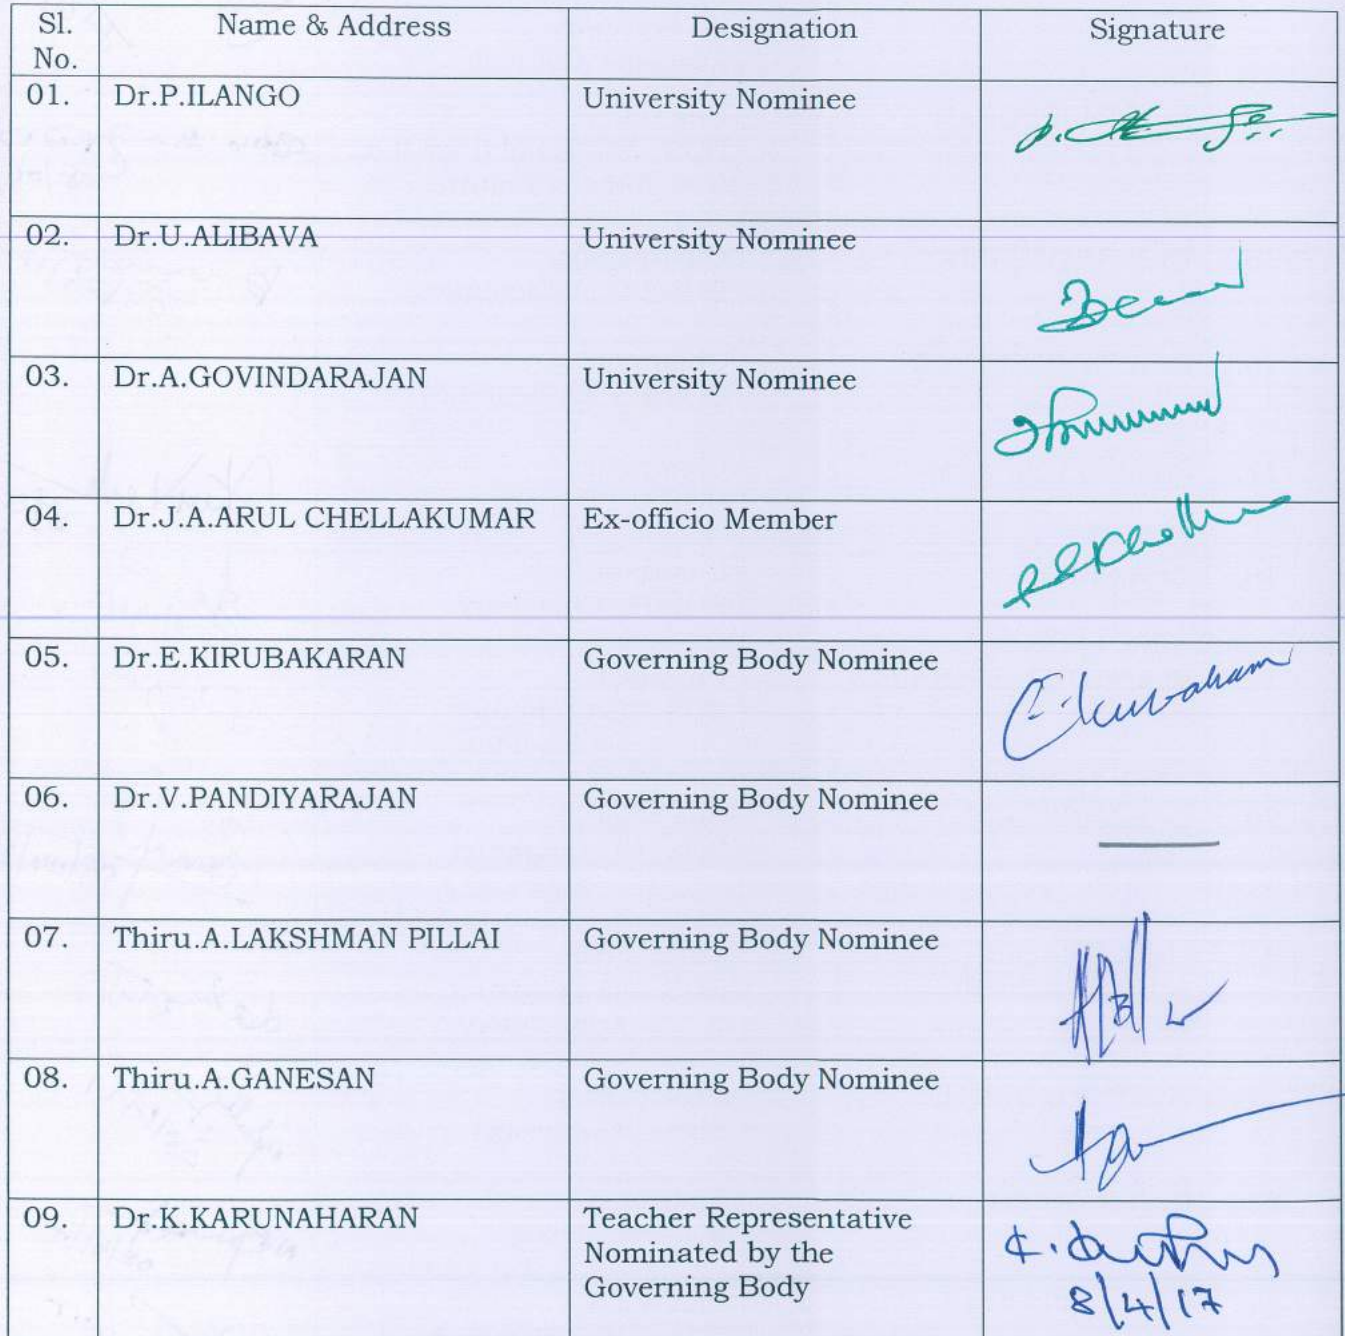 Sl. No. Name & Address Designation Signature
01. Dr.P.ILANGO University Nominee
02. Dr.U.ALIBAVA University Nominee
03. Dr.A.GOVINDARAJAN University Nominee
04. Dr.J.A.ARUL CHELLAKUMAR Ex-officio Member
05. Dr.E.KIRUBAKARAN Governing Body Nominee
06. Dr.V.PANDIYARAJAN Governing Body Nominee
07. Thiru.A.LAKSHMAN PILLAI Governing Body Nominee
08. Thiru.A.GANESAN Governing Body Nominee
09. Dr.K.KARUNAHARAN Teacher Representative
Nominated by the
Governing Body 8/4/17